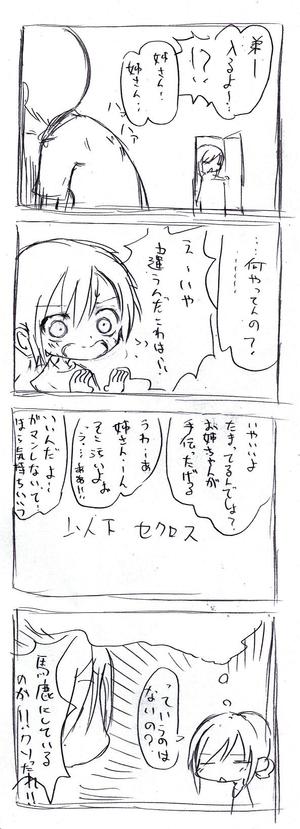 弟ー
入るよー…
!?
姉さん…
姉さん…
……何やってんの？
え…いや
違うんだこれは…
いやいいよ
たまってるんでしょ？
お姉ちゃんが
手伝ったげる
うわ…あ
姉さん…ん
そこ汚いよぉ
う…ああ!!
いいんだよ…
ガマンしないで…
ほら気持ちいい
以下 セクロス
っていうのは
ないの？
馬鹿にしている
のか!!クソったれ!!